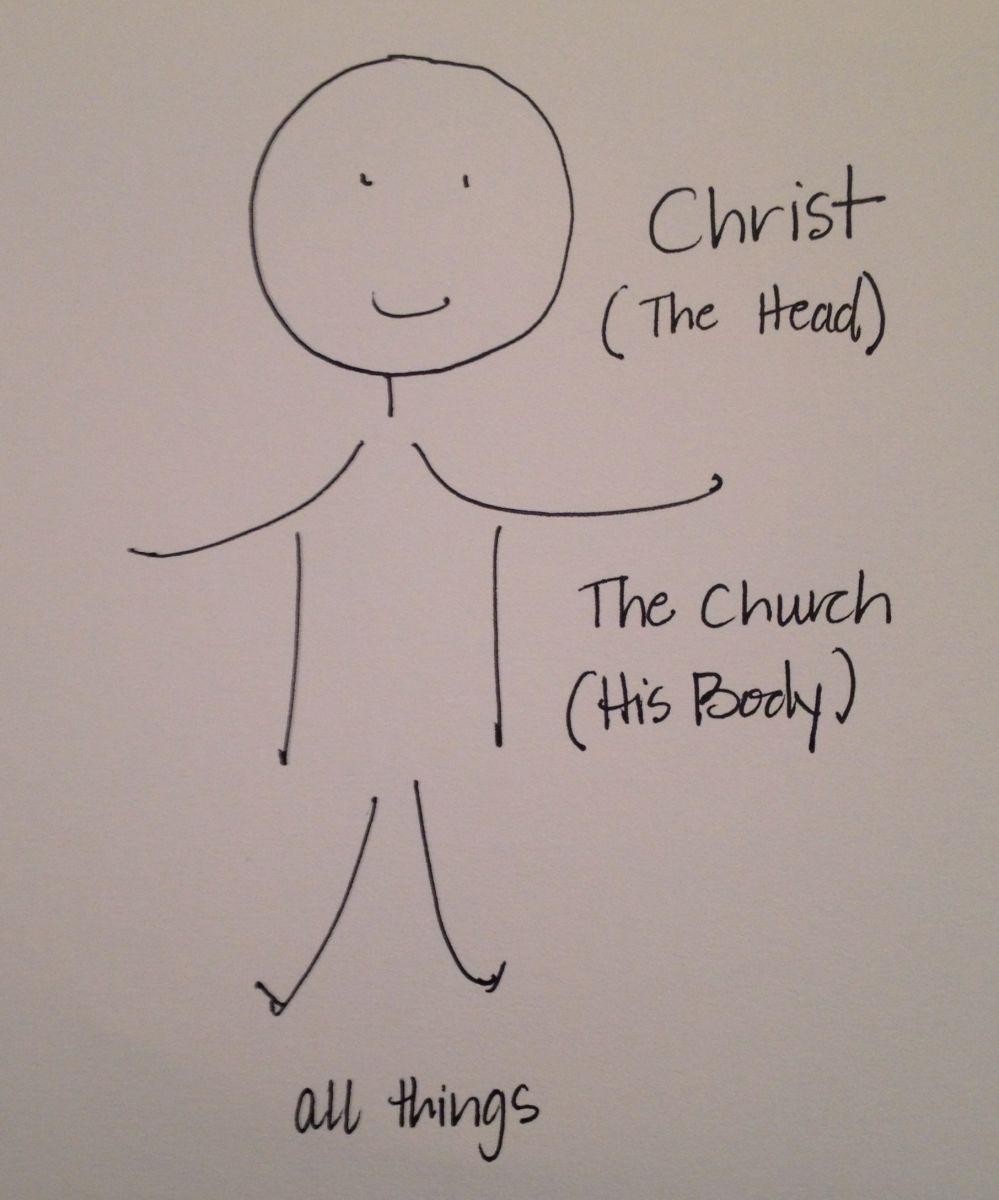 Christ
(The Head)
The Church
(His Body)
all things